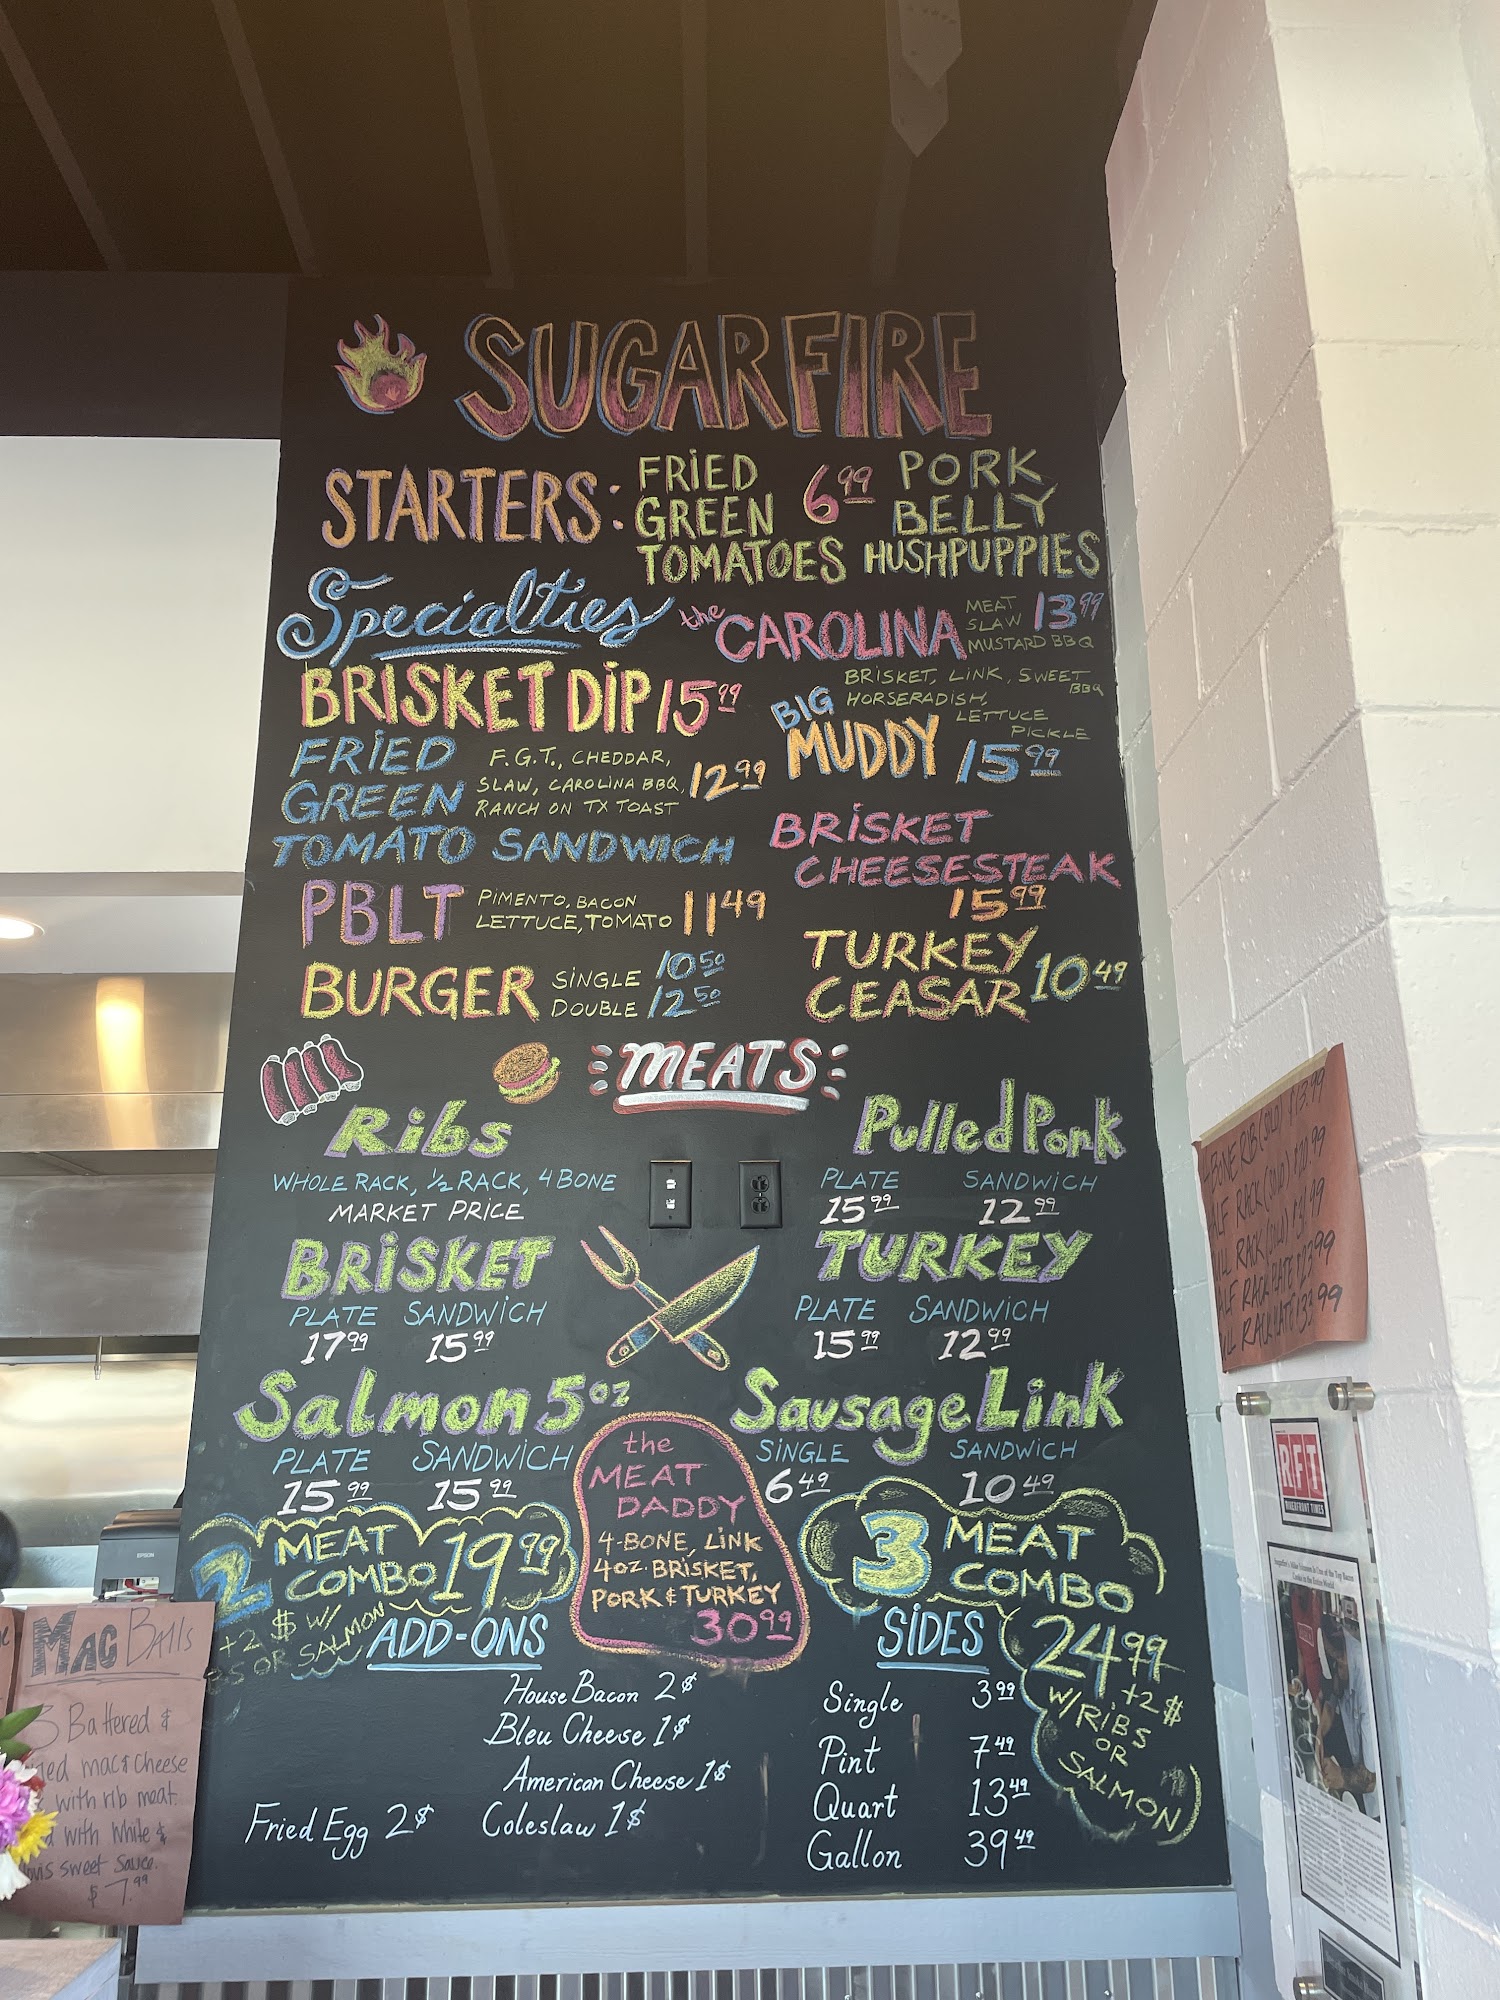 SUGARFIRE
STARTERS: FRIED GREEN TOMATOES 6.99 PORK BELLY HUSHPUPPIES
Specialties
the CAROLINA MEAT SLAW MUSTARD BBQ 13.99
BRISKET DIP 15.99
BIG MUDDY BRISKET, LINK, SWEET BBQ HORSERADISH, LETTUCE PICKLE 15.99
FRIED GREEN TOMATO SANDWICH F.G.T., CHEDDAR, SLAW, CAROLINA BBQ, RANCH ON TX TOAST 12.99
BRISKET CHEESESTEAK 15.99
PBLT PIMENTO, BACON LETTUCE, TOMATO 11.49
TURKEY CEASAR 10.49
BURGER SINGLE 10.50
DOUBLE 12.50
MEATS
Ribs
WHOLE RACK, 1/2 RACK, 4 BONE
MARKET PRICE
Pulled Pork
PLATE SANDWICH
15.99 12.99
BRISKET
PLATE SANDWICH
17.99 15.99
TURKEY
PLATE SANDWICH
15.99 12.99
Salmon 5oz
PLATE SANDWICH
15.99 15.99
Sausage Link
SINGLE SANDWICH
6.49 10.49
the
MEAT
DADDY
4-BONE, LINK
4oz. BRISKET,
PORK & TURKEY
30.99
2 MEAT COMBO 19.99
+2$ W/
OR SALMON
3 MEAT COMBO
24.99
+2$
W/RIBS
OR
SALMON
ADD-ONS
House Bacon 2$
Bleu Cheese 1$
American Cheese 1$
Fried Egg 2$ Coleslaw 1$
SIDES
Single 3.99
Pint 7.49
Quart 13.49
Gallon 39.49
EPSON
MAC Balls
3 Battered &
mac & cheese
with rib meat.
with white &
sweet sauce.
$7.99
BONE RIB (SOLO) $13.99
RACK (SOLO)
RACK (SOLO)
RACK PLATE $23.99
RACK PLATE $33.99
RFT
RIVERFRONT TIMES